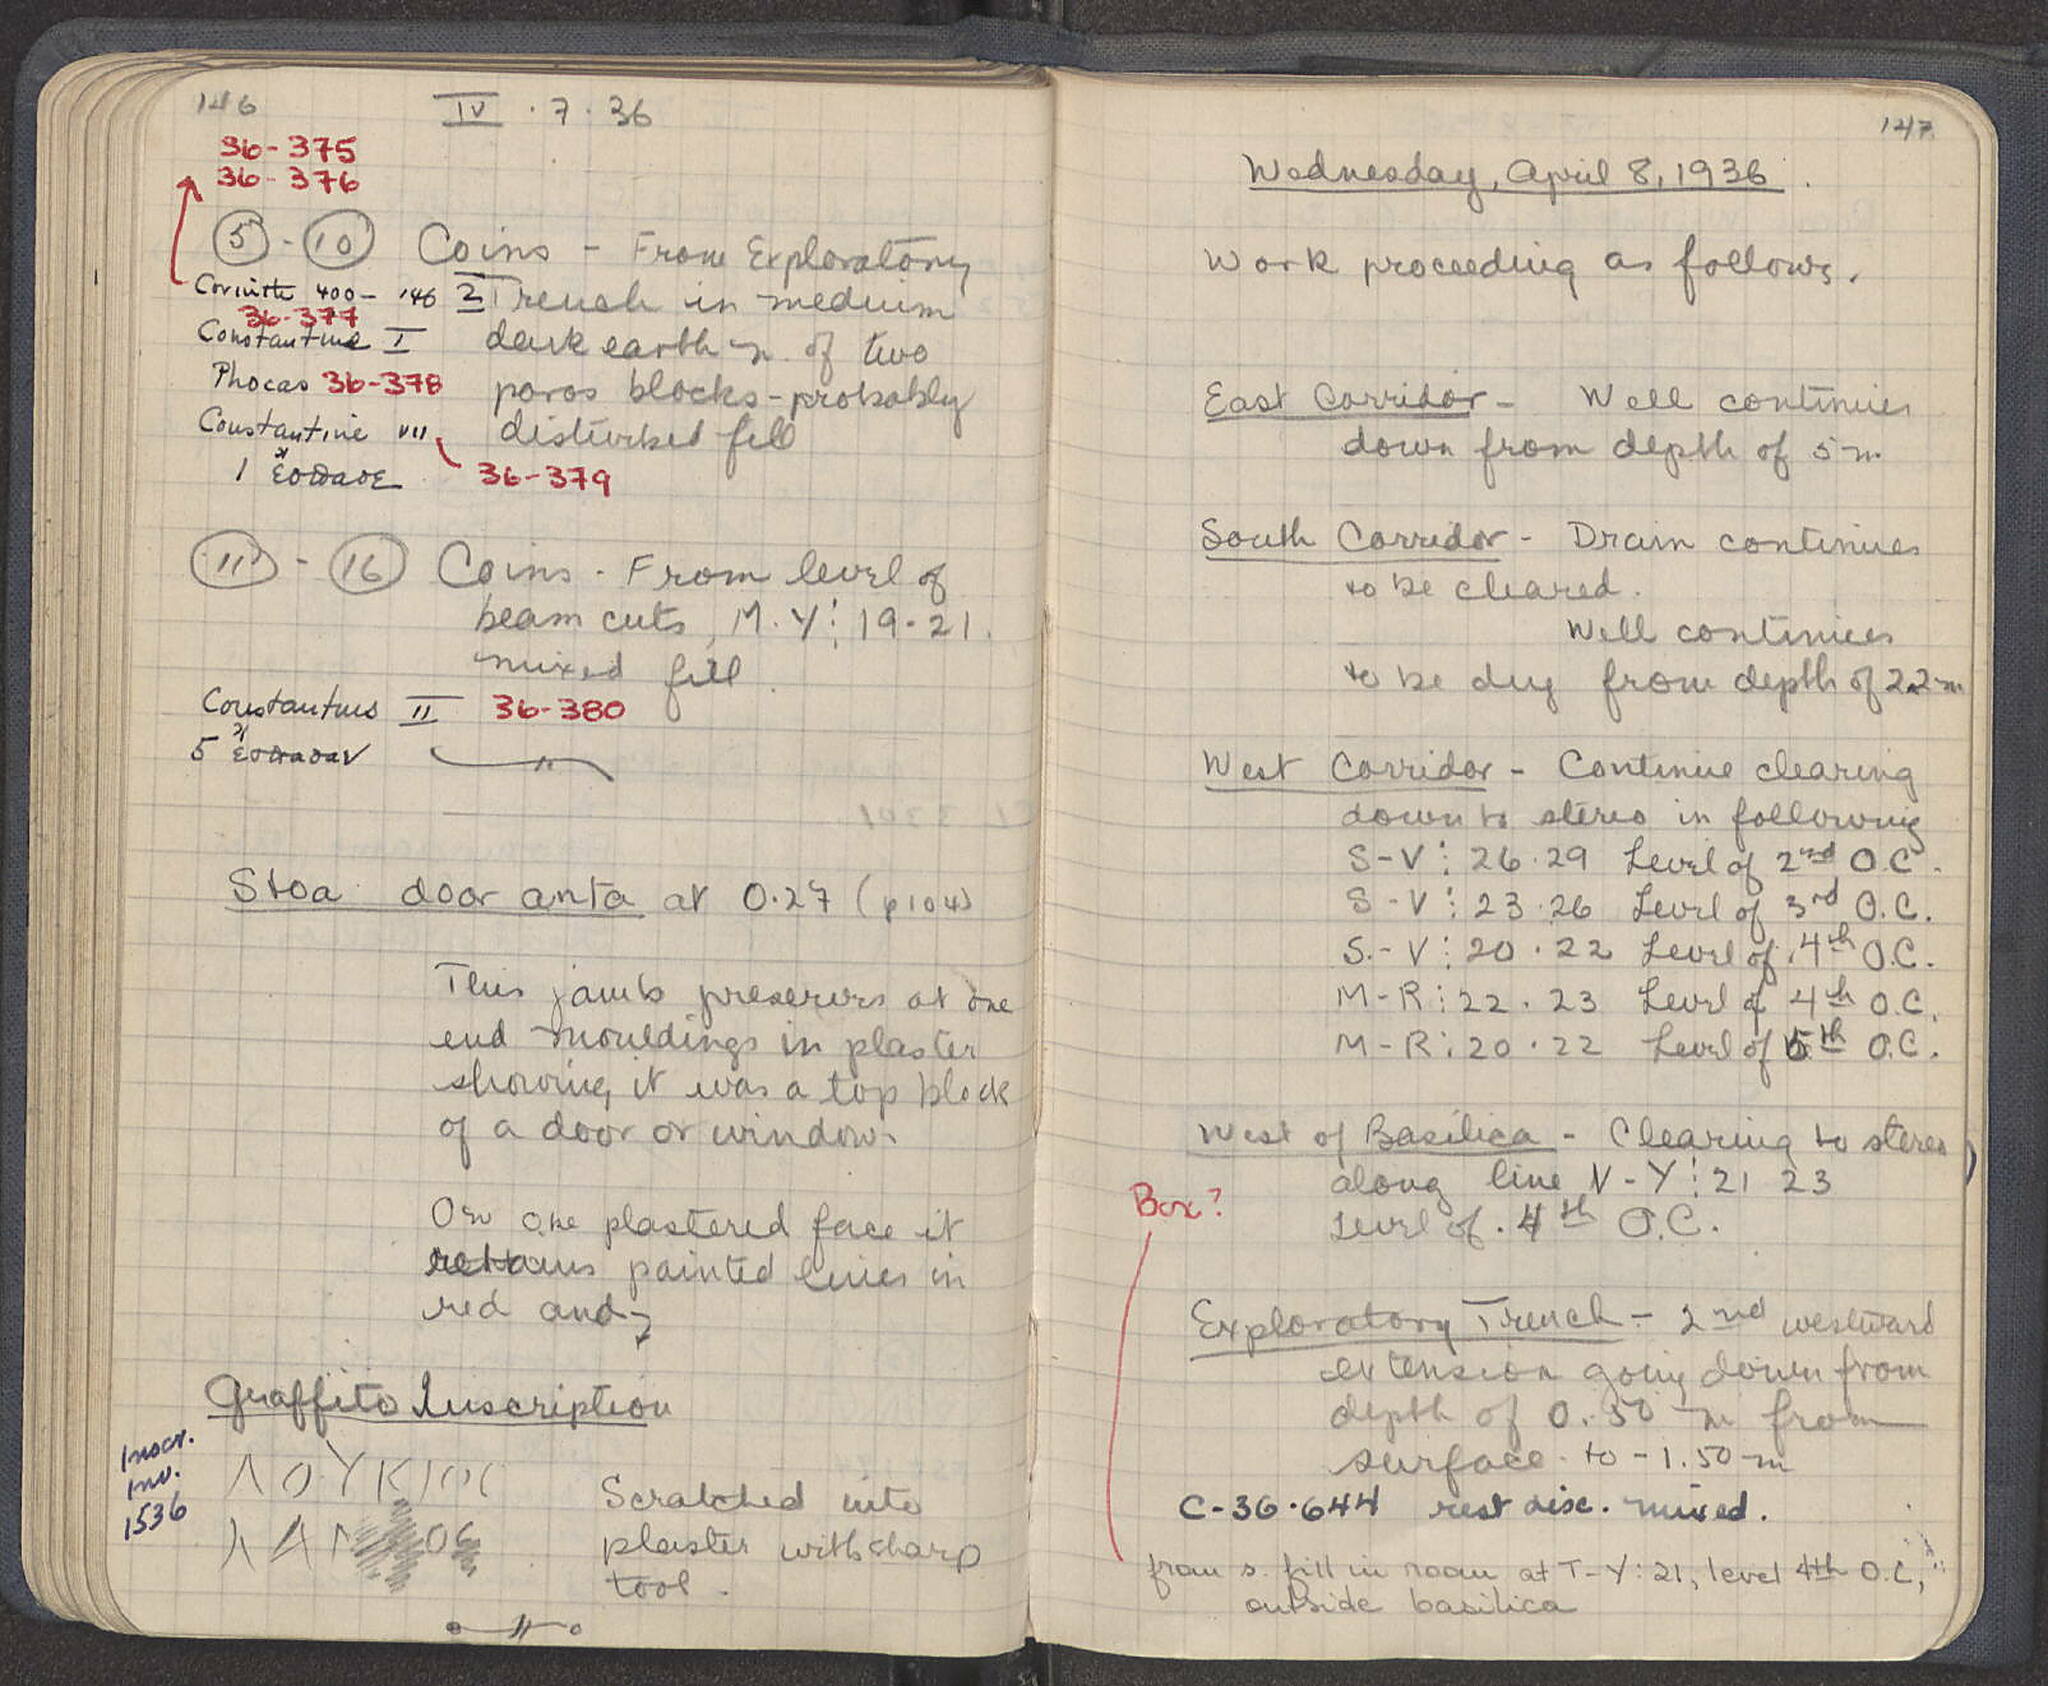 146
IV · 7 · 36
36-375
36-376
5 - 10 Coins - From Exploratory
Corinth 400-146 2 Trench in medium
36-377
Constantine I dark earth n. of two
Phocas 36-378 poros blocks - probably
Constantine VII disturbed fill
1 36-379
11 - 16 Coins - From level of
beam cuts, M-Y: 19-21.
mixed fill.
Constantius II 36-380
5
Stoa door anta at 0.27 (p104)
This jamb preserves at one
end mouldings in plaster
showing it was a top block
of a door or window.
On one plastered face it
retains painted lines in
red and
Graffito Inscription
Inscr.
Inv.
1536
ΛΟΥΚΙΟC
Scratched into
plaster with sharp
tool.
147
Wednesday, April 8, 1936.
Work proceeding as follows.
East Corridor - Well continues
down from depth of 5 m
South Corridor - Drain continues
to be cleared.
Well continues
to be dug from depth of 2.2 m
West Corridor - Continue clearing
down to stereo in following
S-V: 26·29 Level of 2nd O.C.
S-V: 23·26 Level of 3rd O.C.
S-V: 20·22 Level of 4th O.C.
M-R: 22·23 Level of 4th O.C.
M-R: 20·22 Level of 5th O.C.
West of Basilica - Clearing to stereo
along line N-Y: 21 23
Level of 4th O.C.
Box?
Exploratory Trench - 2nd westward
extension going down from
depth of 0.50 m from
surface to -1.50 m
C-36-644 rest disc. mixed.
from s. fill in room at T-Y: 21, level 4th O.C,
outside basilica